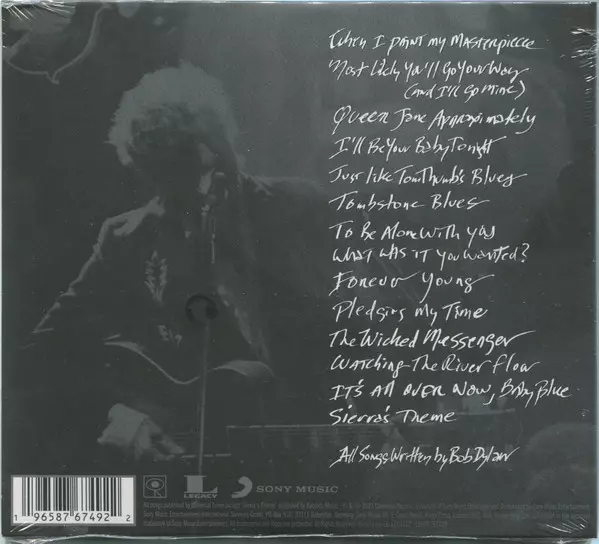 When I Paint my Masterpiece
Most Likely You'll Go Your Way
(and I'll Go Mine)
Queen Jane Approximately
I'll Be Your Baby Tonight
Just Like Tom Thumb's Blues
Tombstone Blues
To Be Alone With You
What Was It You Wanted?
Forever Young
Pledging My Time
The Wicked Messenger
Watching The River Flow
IT'S All OVER NOW, Baby Blue
Sierra's Theme
All Songs Written by Bob Dylan
LEGACY
SONY MUSIC
1 96587 67492 2